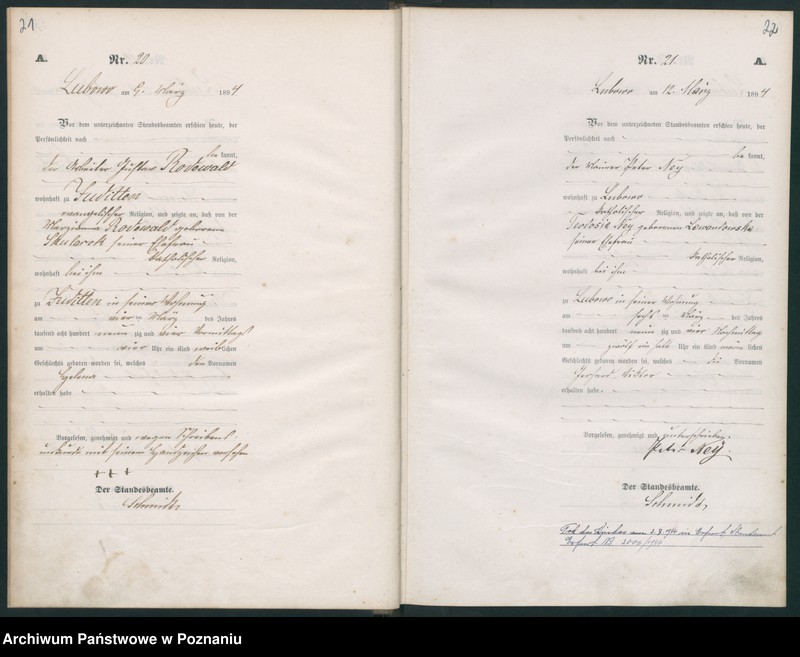 21
A.
Nr. 20
Lubowo am 9. März 1894
Vor dem unterzeichneten Standesbeamten erschien heute, der
Persönlichkeit nach
be kannt,
der Arbeiter Gustav Rodewald
wohnhaft zu Juditten
evangelischer Religion, und zeigte an, daß von der
Marianna Rodewald geborene
Skularek seiner Ehefrau
katholischer Religion,
wohnhaft bei ihm
zu Juditten in seiner Wohnung
am vier März des Jahres
tausend acht hundert neun zig und vier Vormittags
um vier Uhr ein Kind weiblichen
Geschlechts geboren worden sei, welches den Vornamen
Helena
erhalten habe
Vorgelesen, genehmigt und wegen Schreibens
unkunde mit seinem Handzeichen versehen
+ + +
Der Standesbeamte.
Schmidt
22
Nr. 21.
A.
Lubowo am 12. März 1894
Vor dem unterzeichneten Standesbeamten erschien heute, der
Persönlichkeit nach
be kannt,
der Maurer Peter Ney
wohnhaft zu Lubowo
katholischer Religion, und zeigte an, daß von der
Ney geborenen Lewandowska
seiner Ehefrau
katholischer Religion,
wohnhaft bei ihm
zu Lubowo in seiner Wohnung
am März des Jahres
tausend acht hundert neun zig und vier Nachmittag
um zwölf ein halb Uhr ein Kind männ lichen
Geschlechts geboren worden sei, welches die Vornamen
Gerhard Viktor
erhalten habe.
Vorgelesen, genehmigt und unterschrieben.
Peter Ney.
Der Standesbeamte.
Schmidt
Archiwum Państwowe w Poznaniu